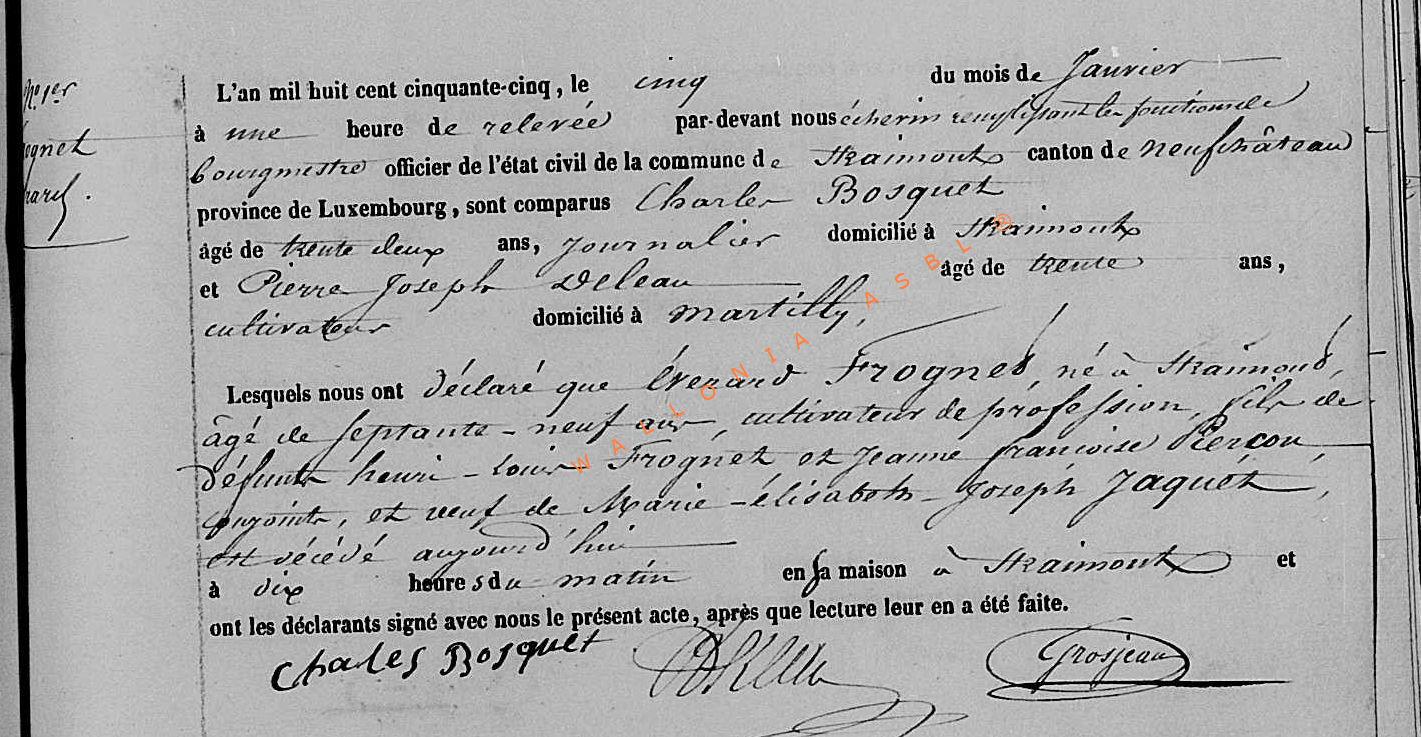 No. 1er
ognet
L'an mil huit cent cinquante-cinq, le cinq du mois de Janvier
à une heure de relevée par-devant nous échevin remplissant les fonctions de
bourgmestre officier de l'état civil de la commune de Straimont canton de Neufchâteau
province de Luxembourg, sont comparus Charles Bosquet
âgé de trente deux ans, journalier domicilié à Straimont
et Pierre Joseph Deleau âgé de trente ans,
cultivateur domicilié à Martilly,
Lesquels nous ont déclaré que Everard Frognet, né à Straimont,
âgé de septante-neuf ans, cultivateur de profession, fils de
défunts henri-Louis Frognet et Jeanne françoise Pierçon,
conjoints, et veuf de Marie-élisabeth-Joseph Jaquet,
est décédé aujourd'hui
à dix heures du matin en sa maison à Straimont et
ont les déclarants signé avec nous le présent acte, après que lecture leur en a été faite.
Charles Bosquet Grosjean
WALLONIA ASBL ®